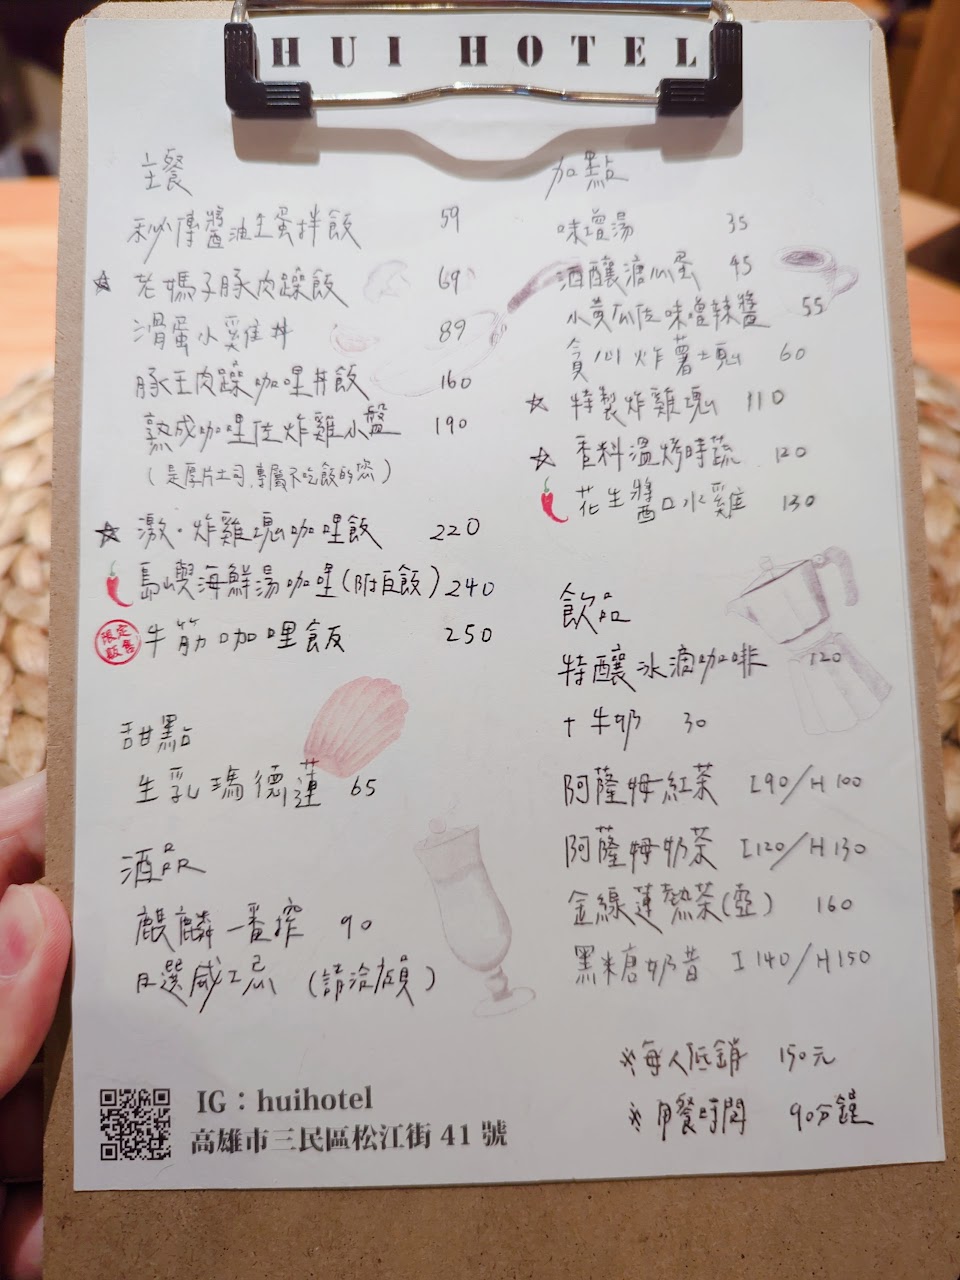 HUI HOTEL
主餐
秘傳醬油生蛋拌飯 59
☆ 老媽子豚肉躁飯 69
滑蛋小雞丼 89
豚王肉躁咖哩丼飯 160
熟成咖哩佐炸雞小盤 190
(是厚片土司,專屬不吃飯的您)
☆ 激·炸雞塊咖哩飯 220
島嶼海鮮湯咖哩(附白飯) 240
限定販售 牛筋咖哩飯 250
甜點
生乳瑪德蓮 65
酒品
麒麟一番搾 90
自選威士忌 (請洽店員)
加點
味增湯 35
酒釀溏心蛋 45
小黃瓜佐味噌辣醬 55
貪心炸薯塊 60
☆ 特製炸雞塊 110
☆ 香料溫烤時蔬 120
花生醬口水雞 130
飲品
特釀冰滴咖啡 120
+牛奶 30
阿薩姆紅茶 I90/H100
阿薩姆奶茶 I120/H130
金線蓮熱茶(壺) 160
黑糖奶昔 I140/H150
※每人低銷 150元
※用餐時間 90分鐘
IG：huihotel
高雄市三民區松江街 41 號